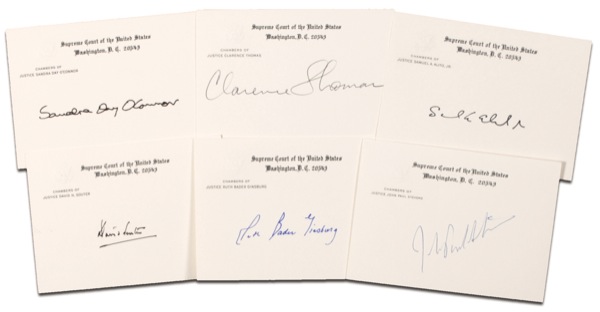 Supreme Court of the United States
Washington, D. C. 20543
CHAMBERS OF
JUSTICE SANDRA DAY O'CONNOR
Sandra Day O'Connor
Supreme Court of the United States
Washington, D. C. 20543
CHAMBERS OF
JUSTICE CLARENCE THOMAS
Clarence Thomas
Supreme Court of the United States
Washington, D. C. 20543
CHAMBERS OF
JUSTICE SAMUEL A. ALITO, JR.
Supreme Court of the United States
Washington, D. C. 20543
CHAMBERS OF
JUSTICE DAVID H. SOUTER
David Souter
Supreme Court of the United States
Washington, D. C. 20543
CHAMBERS OF
JUSTICE RUTH BADER GINSBURG
Ruth Bader Ginsburg
Supreme Court of the United States
Washington, D. C. 20543
CHAMBERS OF
JUSTICE JOHN PAUL STEVENS